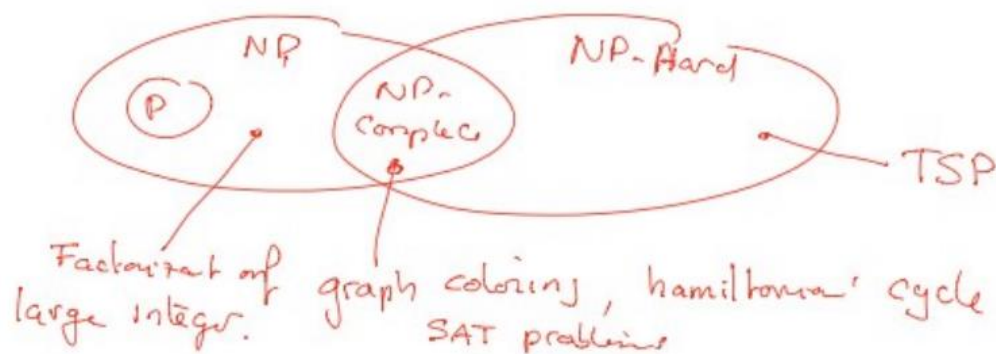 NP
NP-Hard
P
NP-
Complete
TSP
Factorizat of
large integer.
graph coloring, hamiltonian cycle
SAT problems